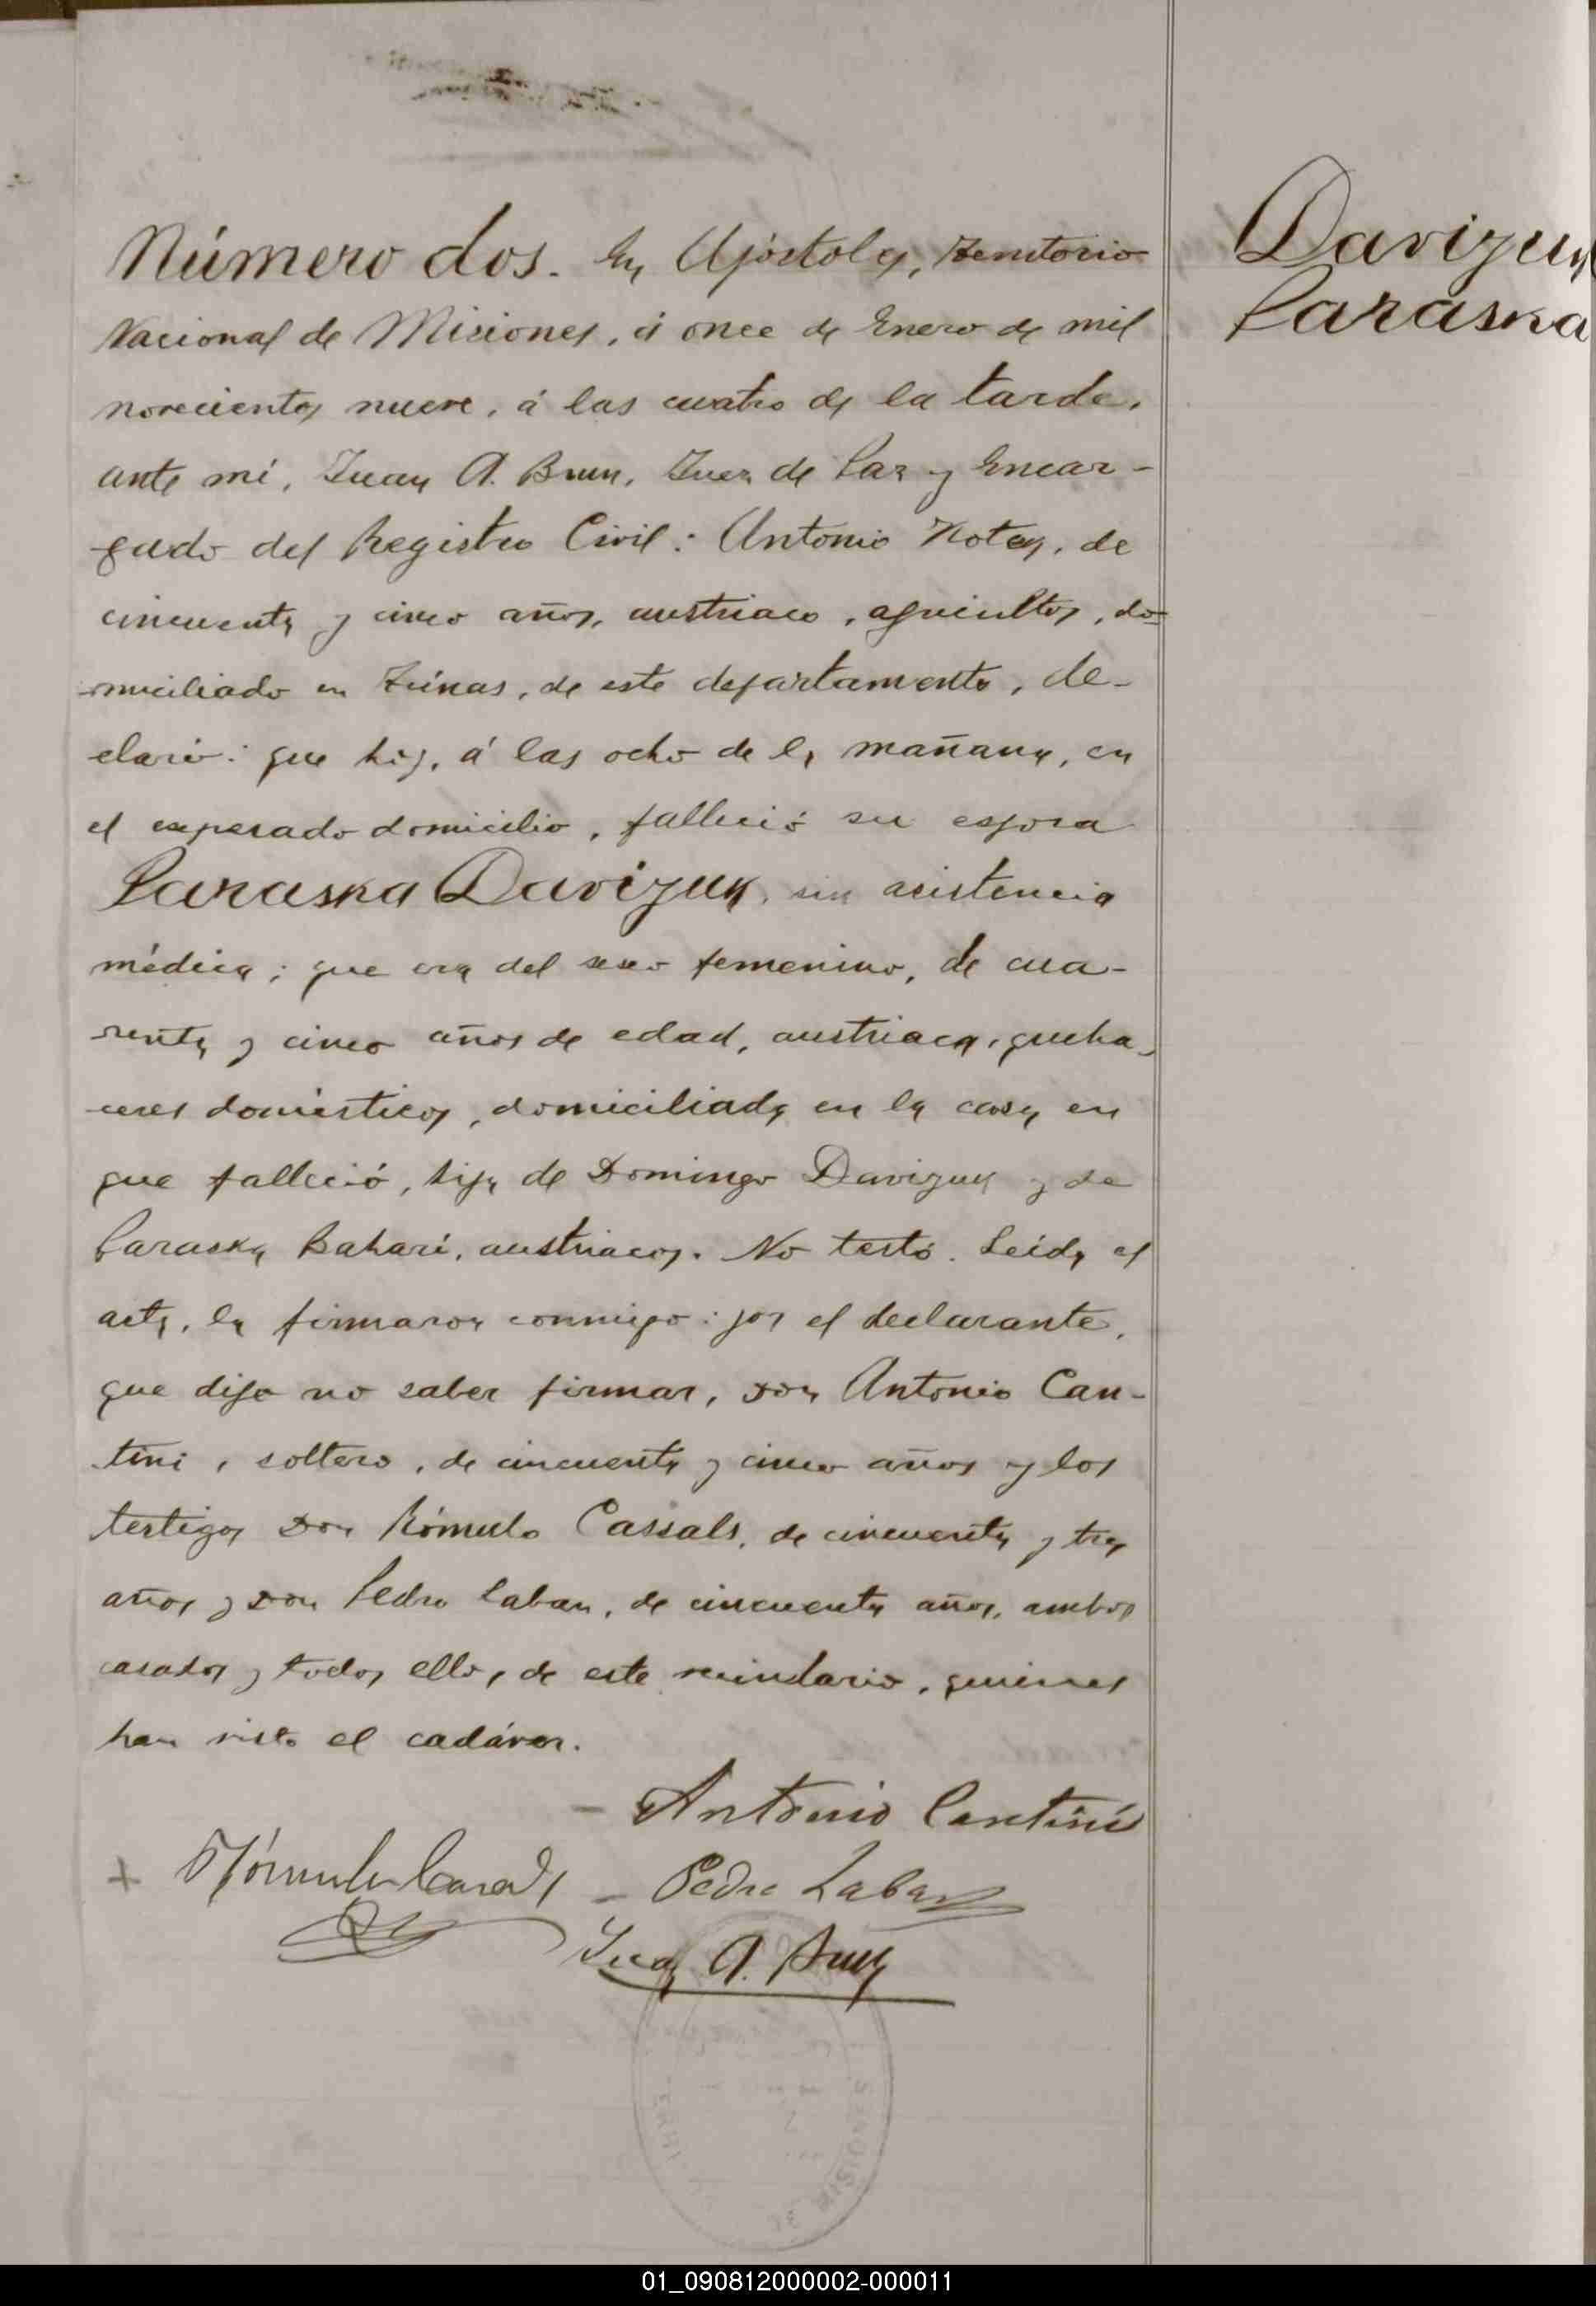 Davizuk
Paraska
Número dos. En Apóstoles, Territorio
Nacional de Misiones, á once de Enero de mil
novecientos nueve, á las cuatro de la tarde,
ante mí, Juan A. Brun, Juez de Paz y Encar-
gado del Registro Civil: Antonio de
cincuenta y cinco años, austriaco, agricultor, do-
miciliado en de este departamento, de-
claró: que hoy, á las ocho de la mañana, en
el expresado domicilio, falleció su esposa
Paraska Davizuk, sin asistencia
médica; que era del sexo femenino, de cua-
renta y cinco años de edad, austriaca, queha-
ceres domésticos, domiciliada en la casa en
que falleció, hija de Domingo Davizuk y de
Paraska Bahari, austriacos. No testó. Leída el
acta, la firmaron conmigo: por el declarante,
que dijo no saber firmar, Don Antonio Can-
tini, soltero, de cincuenta y cinco años y los
testigos Don Rómulo Cassals, de cincuenta y tres
años y Don Pedro Laban, de cincuenta años, ambos
casados y todos ellos de este vecindario, quienes
han visto el cadáver.
Antonio Cantini
Rómulo Casals Pedro Laban
Juan A. Brun
01_090812000002-000011